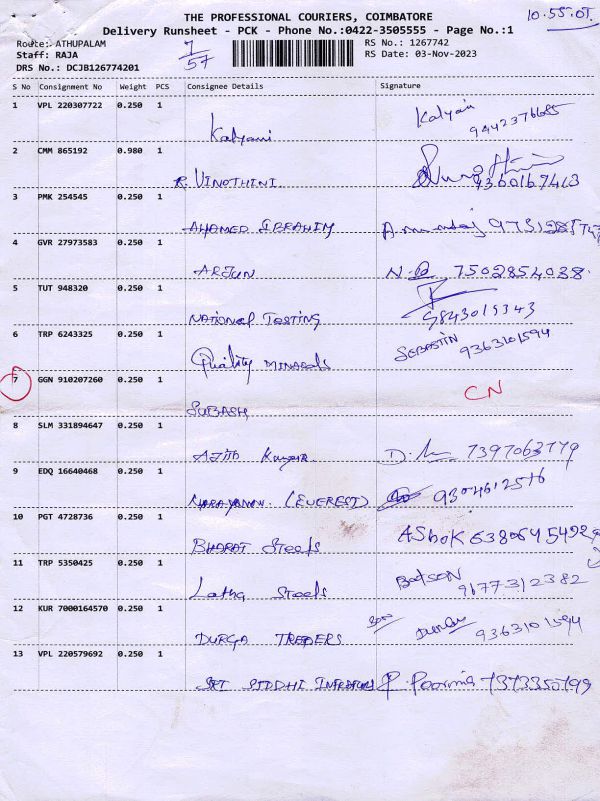 THE PROFESSIONAL COURIERS, COIMBATORE
10.55.01
Delivery Runsheet - PCK - Phone No.:0422-3505555 - Page No.:1
Route: ATHUPALAM
RS No.: 1267742
Staff: RAJA
RS Date: 03-Nov-2023
DRS No.: DCJB126774201
57
S No Consignment No Weight PCS Consignee Details Signature
1 VPL 220307722 0.250 1
Kalyani Kalyani
2 CMM 865192 0.980 1
R. VINOTHINI 9360167413
3 PMK 254545 0.250 1
AHAMED IBRAHIM
4 GVR 27973583 0.250 1
ARJUN 7502854038
5 TUT 948320 0.250 1
NATIONAL TESTING 9843019343
6 TRP 6243325 0.250 1
Quality MINARALS SEBASTIN 9363101594
7 GGN 910207260 0.250 1
SUBASH CN
8 SLM 331894647 0.250 1
AJITH 7397063779
9 EDQ 16640468 0.250 1
(EVEREST)
10 PGT 4728736 0.250 1
BHARAT Steels AShoK
11 TRP 5350425 0.250 1
Latha Steels 9677312382
12 KUR 7000164570 0.250 1
DURGA TREDERS 9363101594
13 VPL 220579692 0.250 1
SRI SIDDHI P. Poornima 7373350799